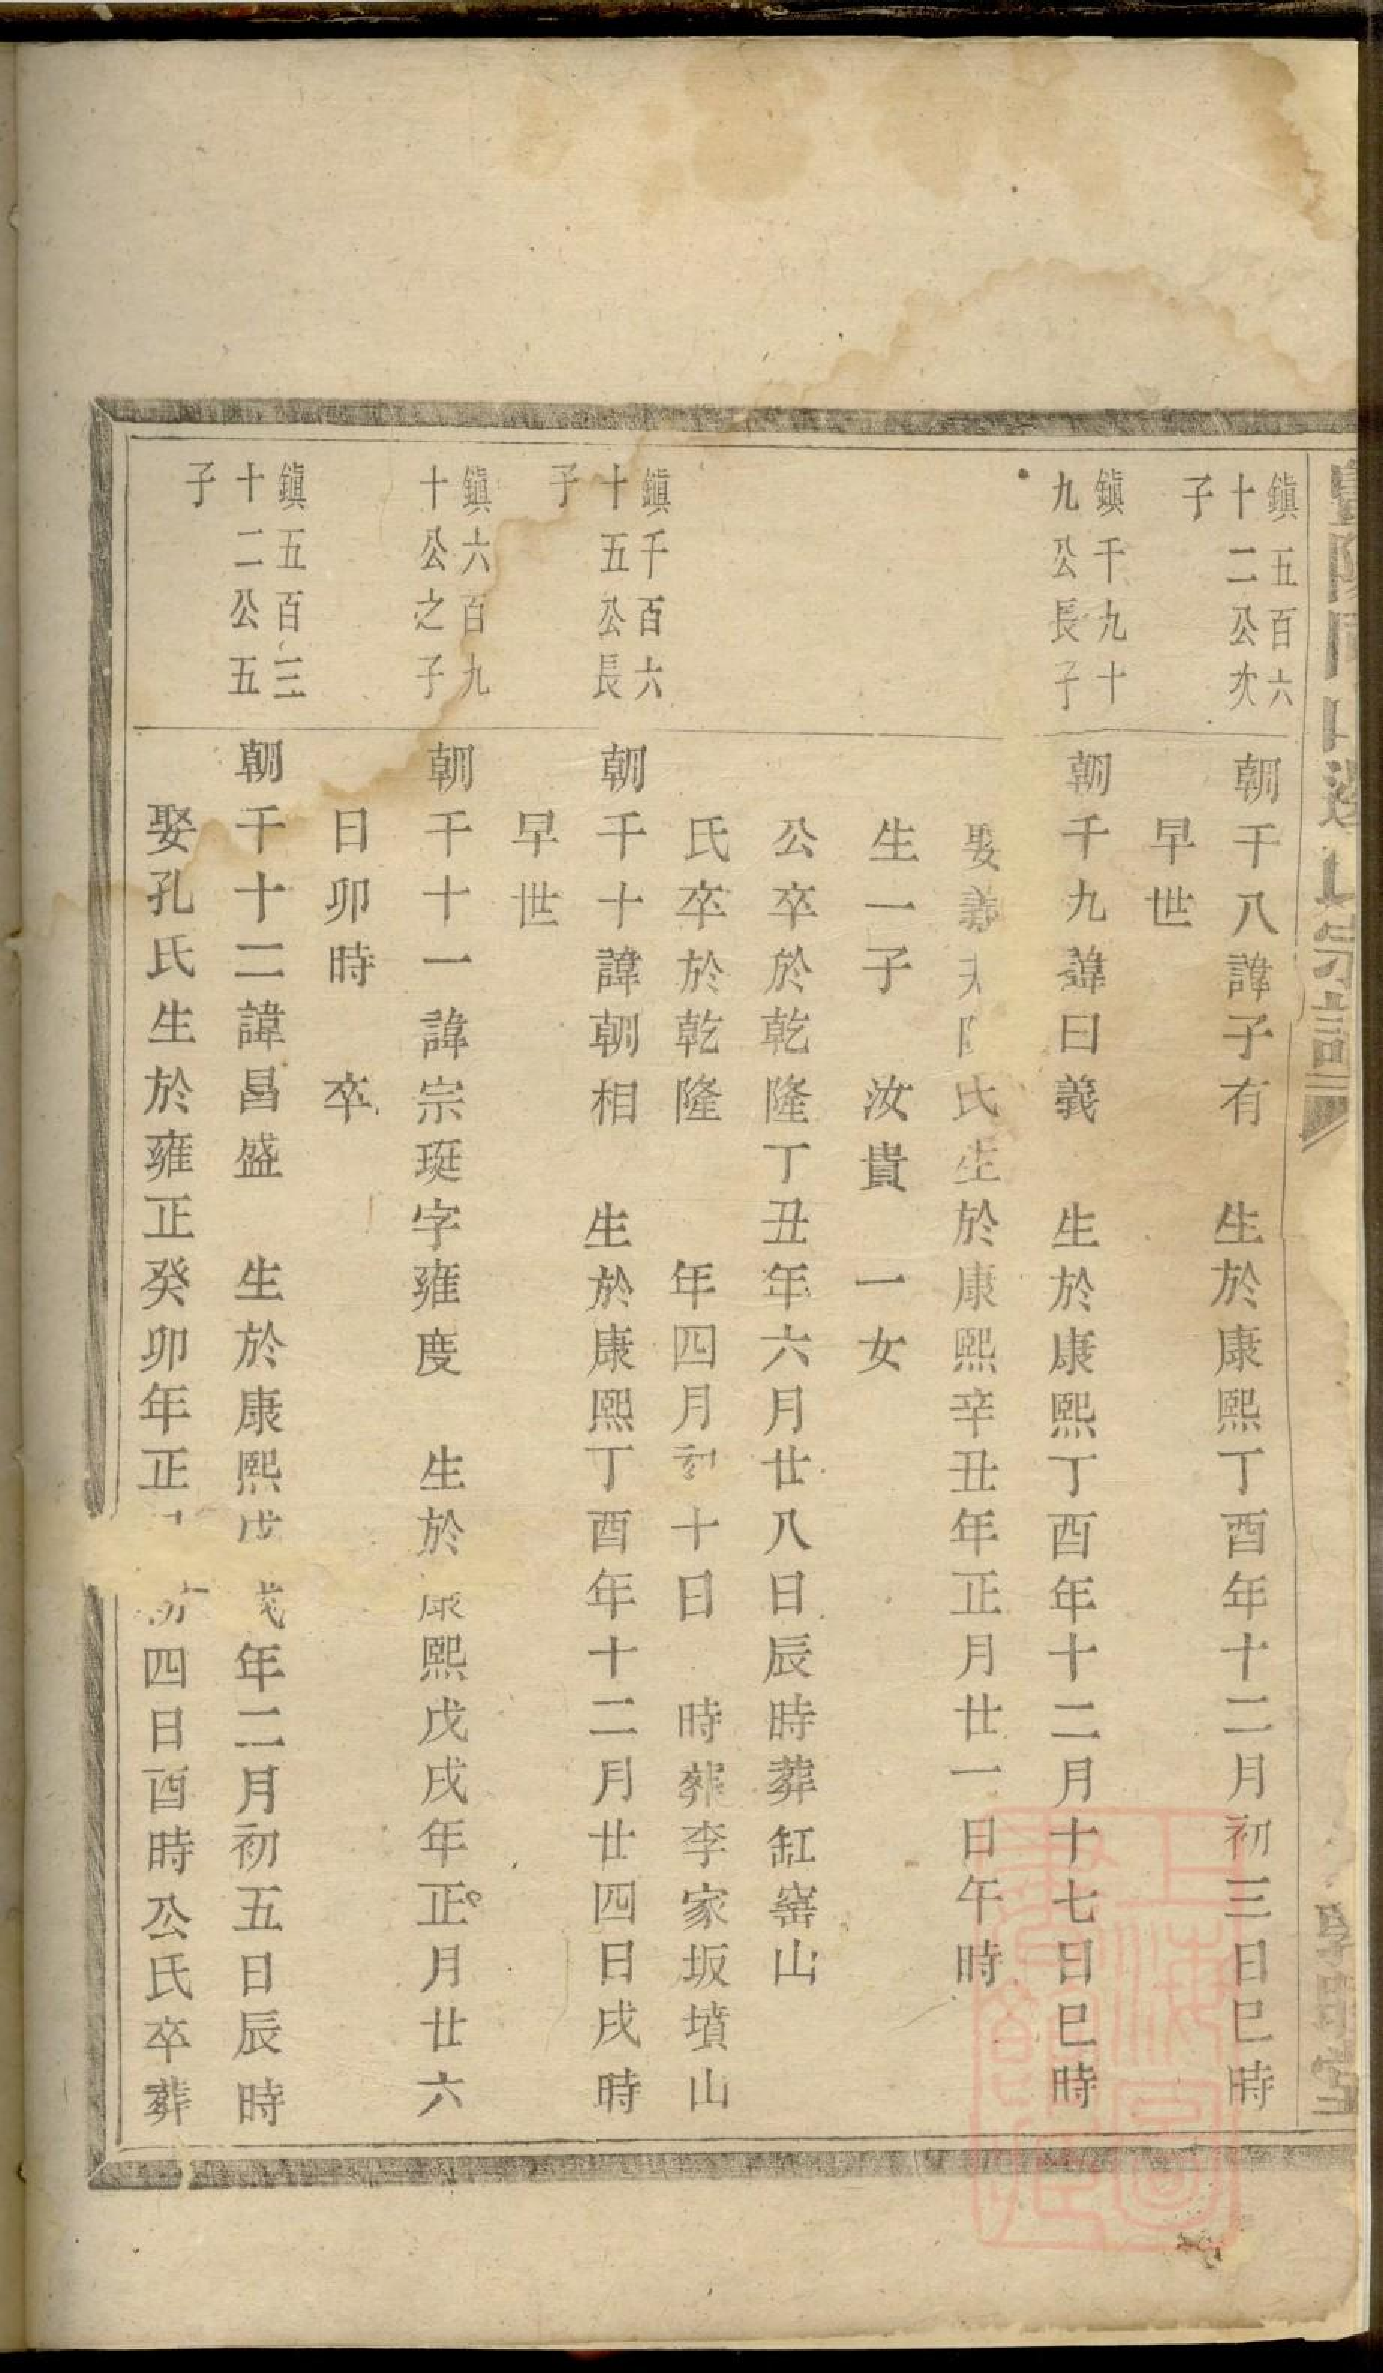 鎮五百六
十二公次
子
朝千八諱子有 生於康熙丁酉年十二月初三日巳時
早世
鎮千九十
九公長子
朝千九諱曰義 生於康熙丁酉年十二月十七日巳時
娶 氏生於康熙辛丑年正月廿一日午時
生一子 汝貴 一女
公卒於乾隆丁丑年六月廿八日辰時葬缸窰山
氏卒於乾隆 年四月初十日 時葬李家坂墳山
鎮千百六
十五公長
子
朝千十諱朝相 生於康熙丁酉年十二月廿四日戌時
早世
鎮六百九
十公之子
朝千十一諱宗珽字雍度 生於康熙戊戌年正月廿六
日卯時 卒
鎮五百三
十二公五
子
朝千十二諱昌盛 生於康熙戊戌年二月初五日辰時
娶孔氏生於雍正癸卯年正 初四日酉時公氏卒葬
上海圖
書館藏